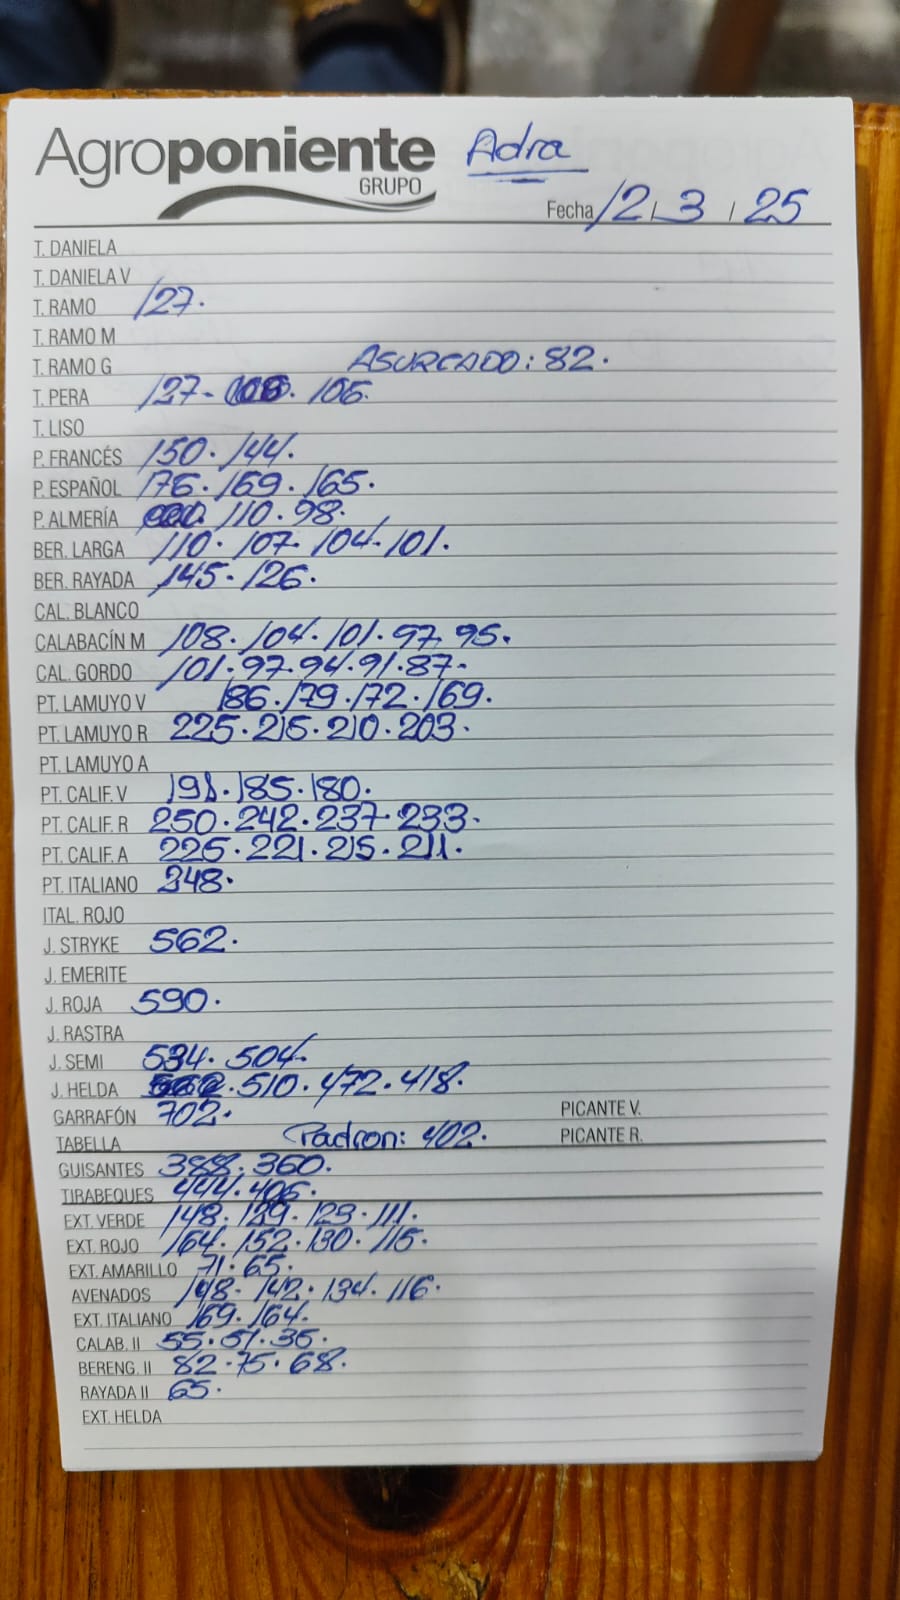 Agroponiente Adra
GRUPO
Fecha 12 / 3 / 25
T. DANIELA
T. DANIELA V
T. RAMO 127.
T. RAMO M
T. RAMO G ASURCADO: 82.
T. PERA 127. 106.
T. LISO
P. FRANCÉS 150. 144.
P. ESPAÑOL 176. 169. 165.
P. ALMERÍA 110. 98.
BER. LARGA 110. 107. 104. 101.
BER. RAYADA 145. 126.
CAL. BLANCO
CALABACÍN M 108. 104. 101. 97. 95.
CAL. GORDO 101. 97. 94. 91. 87.
PT. LAMUYO V 186. 179. 172. 169.
PT. LAMUYO R 225. 215. 210. 203.
PT. LAMUYO A
PT. CALIF. V 191. 185. 180.
PT. CALIF. R 250. 242. 237. 233.
PT. CALIF. A 225. 221. 215. 211.
PT. ITALIANO 248.
ITAL. ROJO
J. STRYKE 562.
J. EMERITE
J. ROJA 590.
J. RASTRA
J. SEMI 534. 504.
J. HELDA 510. 472. 418.
GARRAFÓN 702. PICANTE V.
TABELLA Padron: 402. PICANTE R.
GUISANTES 388. 360.
TIRABEQUES 444. 406.
EXT. VERDE 148. 129. 123. 111.
EXT. ROJO 164. 152. 130. 115.
EXT. AMARILLO 71. 65.
AVENADOS 148. 142. 134. 116.
EXT. ITALIANO 169. 164.
CALAB. II 55. 51. 36.
BERENG. II 82. 75. 68.
RAYADA II 65.
EXT. HELDA